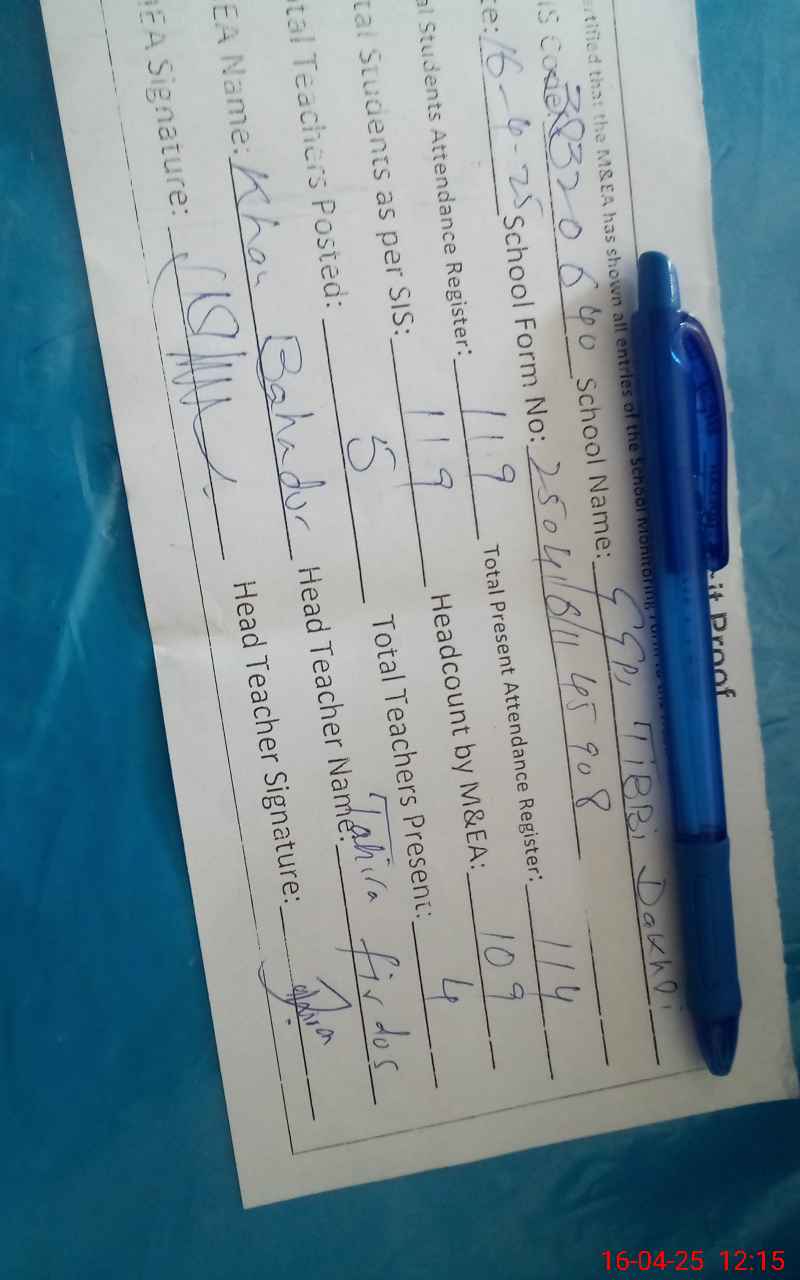 it Proof
ertified that the M&EA has shown all entries of the School Monitoring Form to the
IS Code: 38320640 School Name: GGPS TiBBi Dakhli
te: 16-4-25 School Form No: 2504161145908
al Students Attendance Register: 119 Total Present Attendance Register: 114
tal Students as per SIS: 119 Headcount by M&EA: 109
tal Teachers Posted: 5 Total Teachers Present: 4
EA Name: Khan Bahadur Head Teacher Name: Tahira firdos
EA Signature: Head Teacher Signature:
16-04-25 12:15